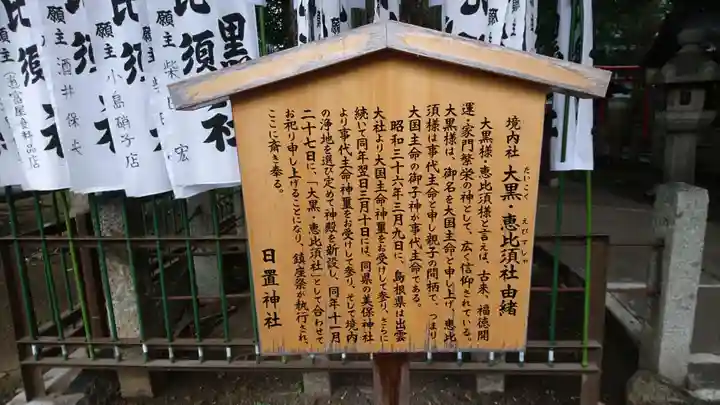 境内社 大黒・恵比須社由緒
だいこく えびすしゃ
大黒様・恵比須様と言えば、古来、福徳開
運・家門繁栄の神として、広く信仰されている。
大黒様は、御名を大国主命と申し上げ、恵比
須様は事代主命と申し親子の間柄で、つまり
大国主命の御子神が事代主命である。
昭和三十六年三月九日に、島根県は出雲
大社より大国主命神璽をお受けして参り、さらに
続いて同年翌日三月十日には、同県の美保神社
より事代主命神璽をお受けして参り、そして境内
の浄地を選び定めて神殿を新設し、同年十一月
二十七日に、「大黒・恵比須社」として合わせて
お祀り申し上げることになり、鎮座祭が執行され、
ここに斎き奉る。
日置神社
黒
社
願主 柴
宏
比須
願主 小島硝子店
比須
社
願主 酒井保夫
須
富屋食料品店